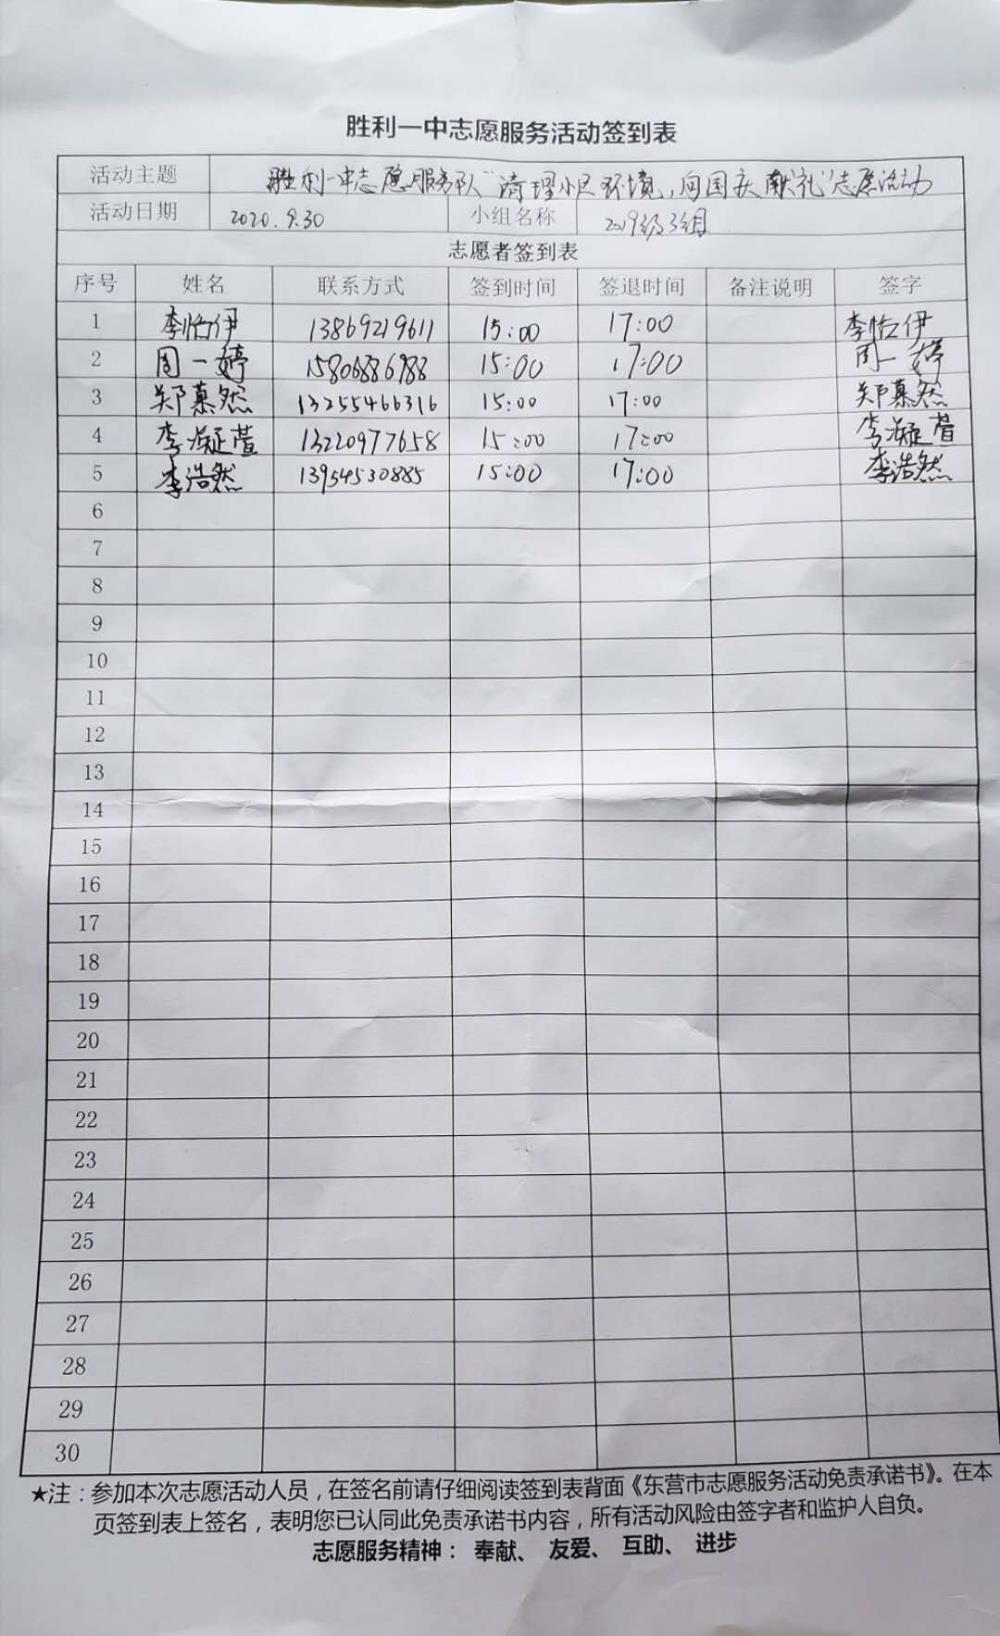 胜利一中志愿服务活动签到表
活动主题 胜利一中志愿服务队"清理小区环境,向国庆献礼"志愿活动
活动日期 2020.9.30 小组名称 2019级3组
志愿者签到表
序号 姓名 联系方式 签到时间 签退时间 备注说明 签字
1 李怡伊 13869219611 15:00 17:00 李怡伊
2 周一婷 15806886988 15:00 17:00 周一婷
3 郑慕然 13255466316 15:00 17:00 郑慕然
4 李凝萱 13220977658 15:00 17:00 李凝萱
5 李浩然 13954530885 15:00 17:00 李浩然
6
7
8
9
10
11
12
13
14
15
16
17
18
19
20
21
22
23
24
25
26
27
28
29
30
★注：参加本次志愿活动人员，在签名前请仔细阅读签到表背面《东营市志愿服务活动免责承诺书》。在本
页签到表上签名，表明您已认同此免责承诺书内容，所有活动风险由签字者和监护人自负。
志愿服务精神： 奉献、 友爱、 互助、 进步